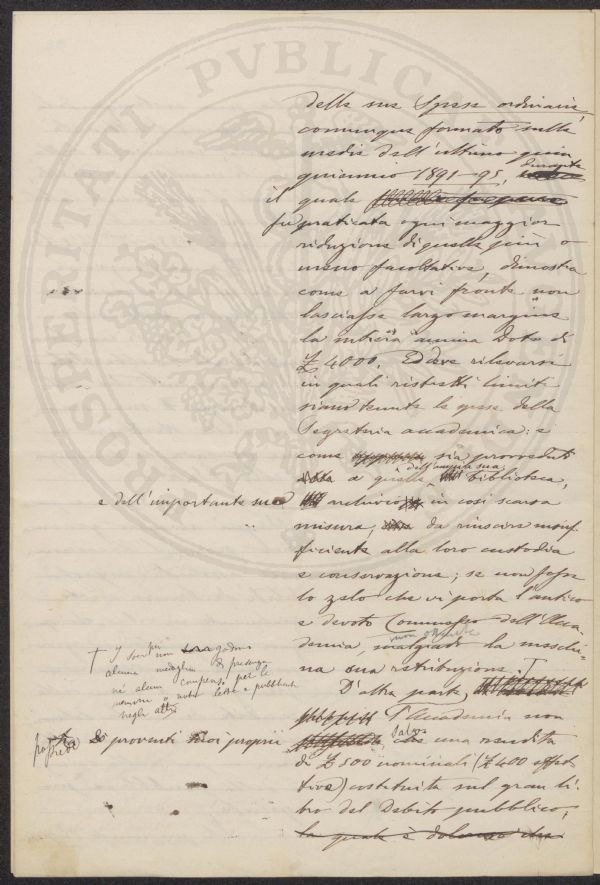 PROSPERITATI PVBLICAE
delle sue Spese ordinarie,
comunque formato sulla
media dell'ultimo quin
quennio 1891-95, durante
il quale
fu praticata ogni maggior
riduzione di quelle più o
meno facoltative, dimostra
come a farvi fronte non
lasciasse largo margine
la intiera annua Dote di
£ 4000. Ed deve rilevarsi
in quali ristretti limiti
siano tenute le spese della
Segreteria accademica: e
come sia provveduto
a quelle dell'annessa sua biblioteca,
e dell'importante suo
archivio in così scarsa
misura, da riuscire insuf
ficiente alla loro custodia
e conservazione; se non fosse
lo zelo che vi porta l'antico
e devoto Commesso dell'Acca
demia, malgrado non ostante la meschi
na sua retribuzione. †
† I Soci poi non godono
alcuna medaglia di presenza
né alcun compenso per le
memorie o note lette e pubblicate
negli atti
D'altra parte,
l'Accademia non
di proventi suoi proprii
salvo una rendita
di £ 500 nominali (£ 400 effet
tive) costituita sul gran li
bro del Debito pubblico,
la quale è